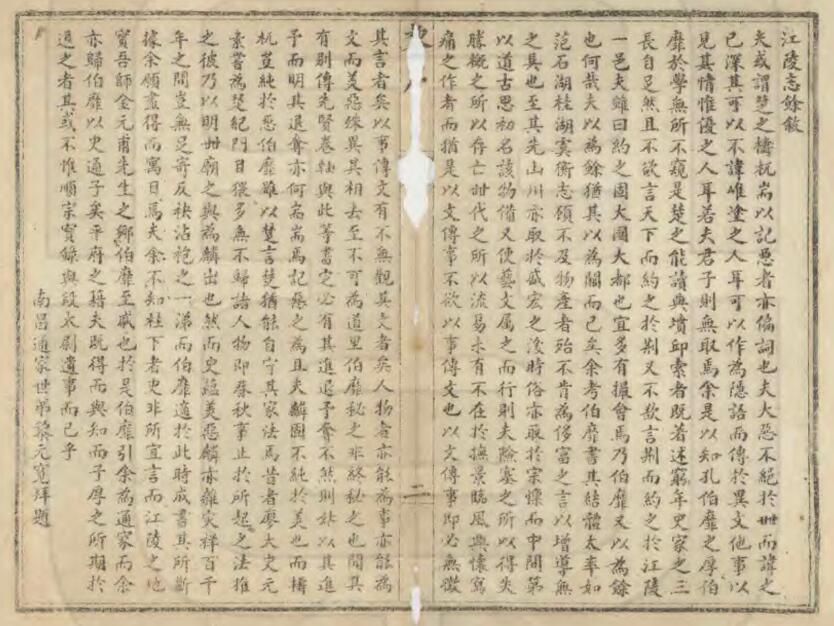 江陵志餘敘
夫或謂楚之檮杌耑以記惡者亦偏詞也夫大惡不絕於世而諱之
已深其可以不諱唯塗之人耳可以作為隱語而傳於異文他事以
見其情惟優之人耳若夫君子則無取焉余是以知孔伯靡之厚伯
靡於學無所不窺是楚之能讀典墳邱索者既著述窮年史家之三
長自足然且不欲言天下而約之於荆又不欲言荆而約之於江陵
一邑夫雖曰約之固大國大都也宜多有撮會焉乃伯靡又以為餘
也何哉夫以為餘猶其以為闕而已矣余考伯靡書其結體大率如
范石湖桂湖虞衡志領不及物產者殆不肯為侈富之言以增導無
之具也至其先山川亦取於盛宏之後時俗亦取於宗懍而中間第
以道古思初名該物備又使藝文属之而行則夫險塞之所以得失
勝概之所以存亡世代之所以流易未有不在於撫景臨風興懷寫
痛之作者而猶是以文傳事不欲以事傳文也以文傳事即必無徵
二
其言者矣以事傳文有不無觀其文者矣人物者亦能為事亦能為
文而美惡殊異其相去至不可為道里伯靡秘之非終秘之也聞其
有別傳先賢卷軸與此等書定必有其進退予奪不然則殆以其進
予而明其退奪亦何耑耑焉記惡之為且夫麟固不純於美也而檮
杌豈純於惡伯靡雖以楚言楚猶能自守其家法焉昔者廖大史元
素嘗為楚紀門目猥多無不歸諸人物即春秋事止於所起之法推
之彼乃以明世廟之興為麟出也然而史蘊美惡麟亦雜灾祥百千
年之間豈無足寄反袂沾袍之一涕而伯靡適於此時成書其所斷
據余順書得而寓目焉夫余不知柱下者史非所宜言而江陵之地
實吾師金元甫先生之鄉伯靡至戚也於是伯靡引余為通家而余
亦歸伯靡以史通子矣乎府之籍夫既得而與知而子厚之所期於
退之者其或不惟順宗實錄與段太尉遺事而已乎
南昌通家世弟黎元寬拜題